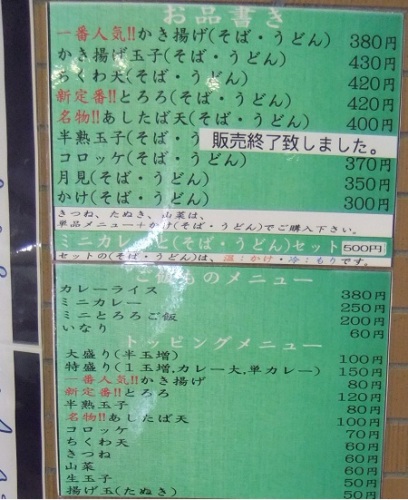 お品書き
一番人気!!かき揚げ(そば・うどん) 380円
かき揚げ玉子(そば・うどん) 430円
ちくわ天(そば・うどん) 420円
新定番!!とろろ(そば・うどん) 420円
名物!!あしたば天(そば・うどん) 400円
半熟玉子(そば・う 販売終了致しました。
コロッケ(そば・うどん) 370円
月見(そば・うどん) 350円
かけ(そば・うどん) 300円
きつね、たぬき、山菜は、
単品メニュー+かけ(そば・うどん)でご購入下さい。
ミニカレーと(そば・うどん)セット 500円
セットの(そば・うどん)は、温:かけ・冷:もりです。
ご飯ものメニュー
カレーライス 380円
ミニカレー 250円
ミニとろろご飯 200円
いなり 60円
トッピングメニュー
大盛り(半玉増) 100円
特盛り(1玉増.カレー大.単カレー) 150円
一番人気!!かき揚げ 80円
新定番!!とろろ 120円
半熟玉子 80円
名物!!あしたば天 100円
コロッケ 70円
ちくわ天 60円
きつね 60円
山菜 60円
生玉子 50円
揚げ玉(たぬき) 50円